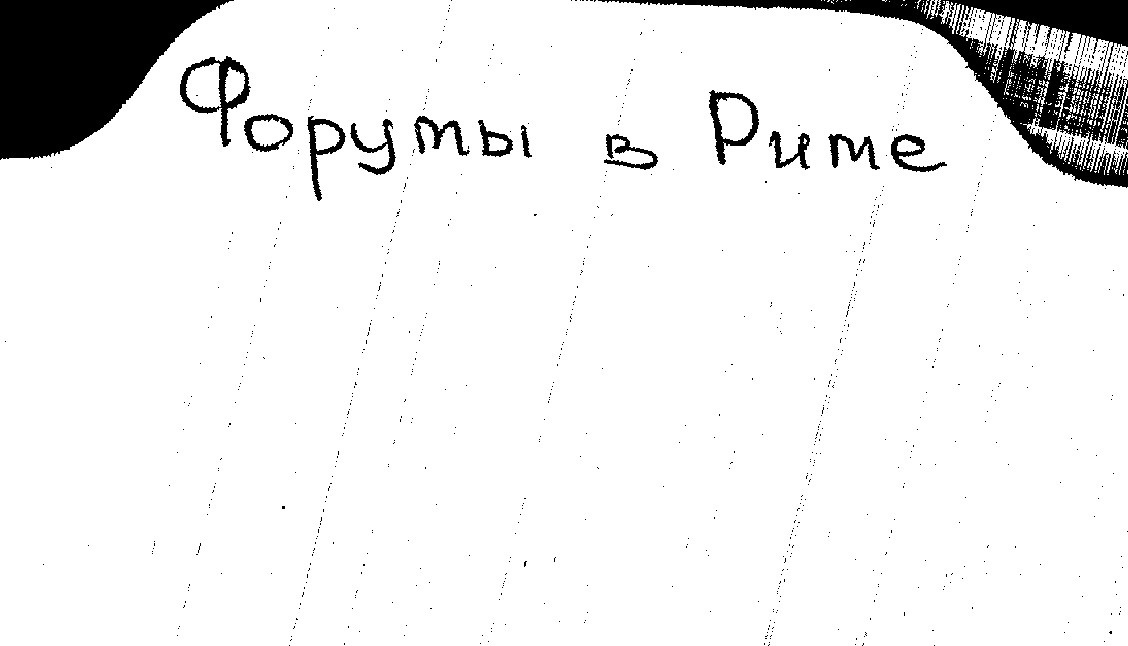 Форумы в Риме